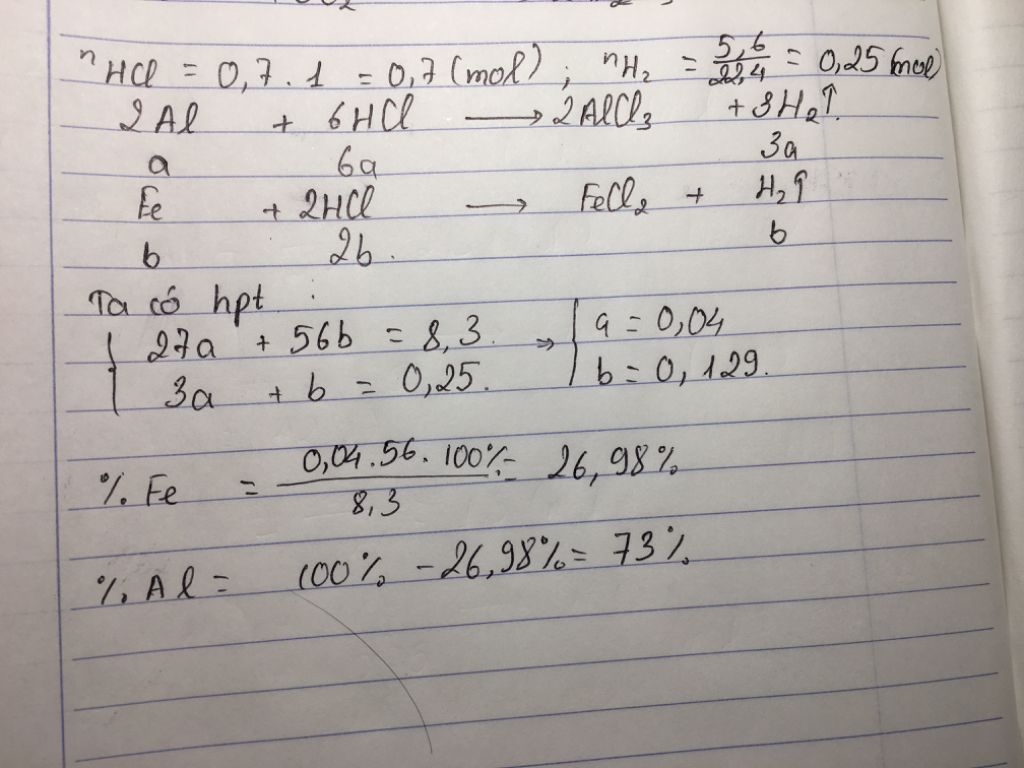 nHCl = 0,7 . 1 = 0,7 (mol) ; nH₂ = 5,6/22,4 = 0,25 (mol)
2Al + 6HCl ⟶ 2AlCl₃ + 3H₂↑.
a 6a 3a
Fe + 2HCl ⟶ FeCl₂ + H₂↑
b 2b . b
Ta có hpt :
{ 27a + 56b = 8,3. ⇒ { a = 0,04
3a + b = 0,25. b = 0,129.
% Fe = 0,04.56.100%/8,3 = 26,98%
% Al = 100% - 26,98% = 73%